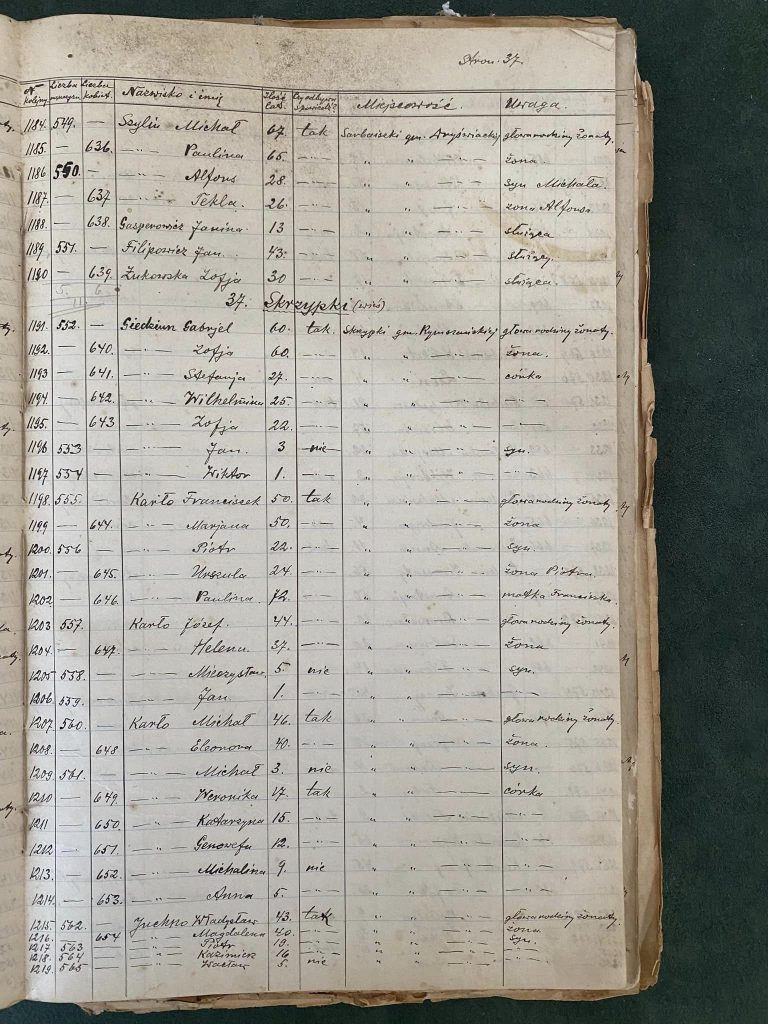 Stron. 37.
N kolejny. Liczba mężczyzn Liczba kobiet. Nazwisko i imię Ilość lat. Czy odbywa spowiedź? Miejscowość Uwaga.
1184. 549. — Szylin Michał 67. tak Sarbaiszki gm. głowa rodziny żonaty.
1185. — 636. — " — Paulina 65. — " — " " — " — żona
1186 550. — — " — Alfons 28. — " — " " — " — syn Michała.
1187. — 637 — " — Tekla. 26. — " — " " — " — żona Alfonsa
1188. — 638. Gasperowicz Janina 13 — " — " " — " — służąca
1189 551. — Filipowicz Jan. 43. — " — " " — " — służący.
1190 — 639. Żukowska Zofja 30 — " — " " — " — służąca.
5. 6.
11.
37. Skrzypki (wieś)
1191. 552. — Giedziun Gabrjel 60. tak Skrzypki gm. Rymszańskiej głowa rodziny żonaty.
1192. — 640. — " — Zofja 60. — " — " " — " — żona.
1193 — 641. — " — Stefanja 27. — " — " " — " — córka
1194. — 642. — " — Wilhelmina 25. — " — " " — " — — " —
1195. — 643 — " — Zofja 22. — " — " " — " — — " —
1196 553 — — " — Jan. 3 nie " " — " — syn.
1197 554 — — " — Wiktor 1. — " — " " — " — — " —
1198. 555. — Karło Franciszek 50. tak " " — " — głowa rodziny żonaty.
1199 — 644. — " — Marjana 50. — " — " " — " — żona
1200. 556 — — " — Piotr 22. — " — " " — " — syn
1201. — 645. — " — Urszula 24. — " — " " — " — żona Piotra.
1202 — 646. — " — Paulina. 72. — " — " " — " — matka Franciszka.
1203 557. — Karło Józef. 44. — " — " " — " — głowa rodziny żonaty.
1204. — 647. — " — Helena 37. — " — " " — " — żona
1205 558. — — " — Mieczysław. 5. nie " " — " — syn.
1206. 559. — — " — Jan. 1. — " — " " — " — — " —
1207. 560. — Karło Michał 46. tak " " — " — głowa rodziny żonaty.
1208. — 648 — " — Eleonora 40. — " — " " — " — żona.
1209. 561. — — " — Michał 3. nie " " — " — syn.
1210 — 649. — " — Weronika 17. tak " " — " — córka
1211 — 650. — " — Katarzyna 15. — " — " " — " — — " —
1212 — 651. — " — Genowefa 12. — " — " " — " — — " —
1213. — 652. — " — Michalina 9. nie " " — " — — " —
1214. — 653. — " — Anna 5. — " — " " — " — — " —
1215. 562. — Juchno Władysław 43. tak " " — " — głowa rodziny żonaty.
1216. — 654 — " — Magdalena 40. — " — " " — " — żona.
1217 563 — — " — Piotr 19. — " — " " — " — syn.
1218. 564 — — " — Kazimierz 16 — " — " " — " — — " —
1219. 565 — — " — Wacław 5. nie " " — " — — " —